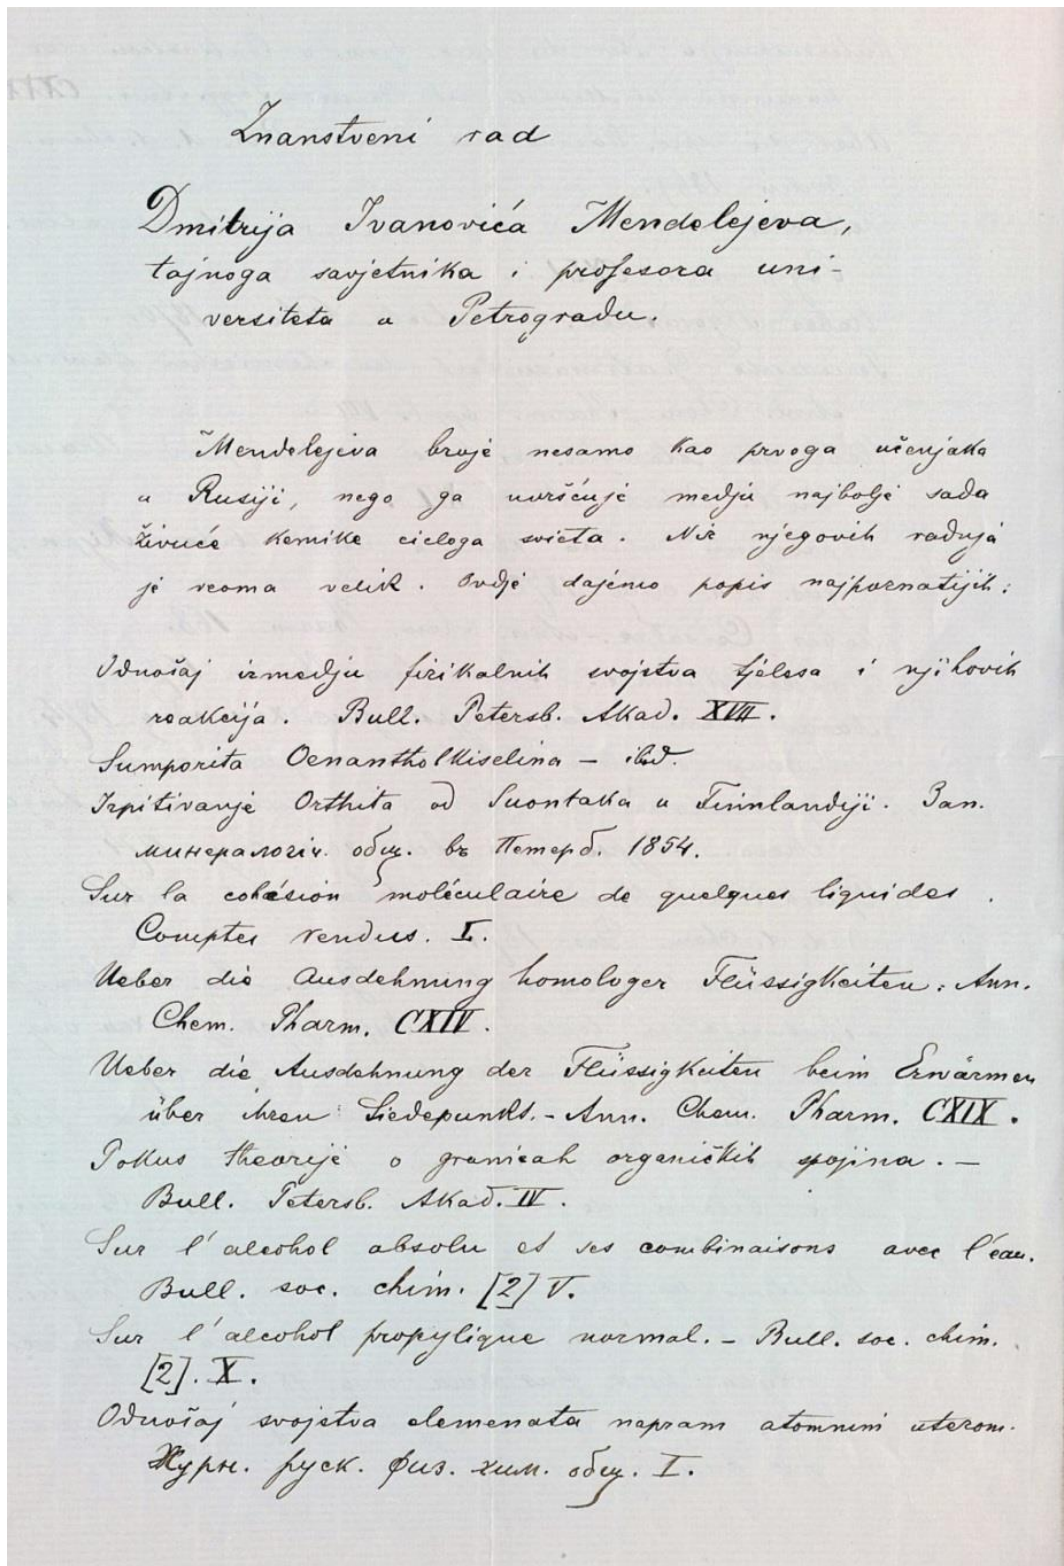 Znanstveni rad
Dmitrija Ivanovića Mendelejeva,
tajnoga savjetnika i profesora uni-
versiteta u Petrogradu.
Mendelejeva broje nesamo kao prvoga učenjaka
u Rusiji, nego ga uvršćuje medju najbolje sada
živuće kemike cieloga svieta. Niz njegovih radnja
je veoma velik. Ovdje dajemo popis najpoznatijih:
Odnošaj izmedju fizikalnih svojstva tjelesa i njihovih
reakcija. Bull. Petersb. Akad. XVII.
Sumporita Oenantholkiselina – ibid.
Izpitivanje Orthita od Suontaka u Finnlandiji. Зап.
минералогич. общ. въ Петерб. 1854.
Sur la cohésion moléculaire de quelques liquides.
Comptes rendus. L.
Ueber die Ausdehnung homologer Flüssigkeiten. Ann.
Chem. Pharm. CXIV.
Ueber die Ausdehnung der Flüssigkeiten beim Erwärmen
über ihren Siedepunkt. – Ann. Chem. Pharm. CXIX.
Pokus theorije o granicah organičkih spojina. –
Bull. Petersb. Akad. IV.
Sur l'alcohol absolu et ses combinaisons avec l'eau.
Bull. soc. chim. [2] V.
Sur l'alcohol propylique normal. – Bull. soc. chim.
[2]. X.
Odnošaj svojstva elemenata napram atomnim utezom.
Журн. руск. физ. хим. общ. I.